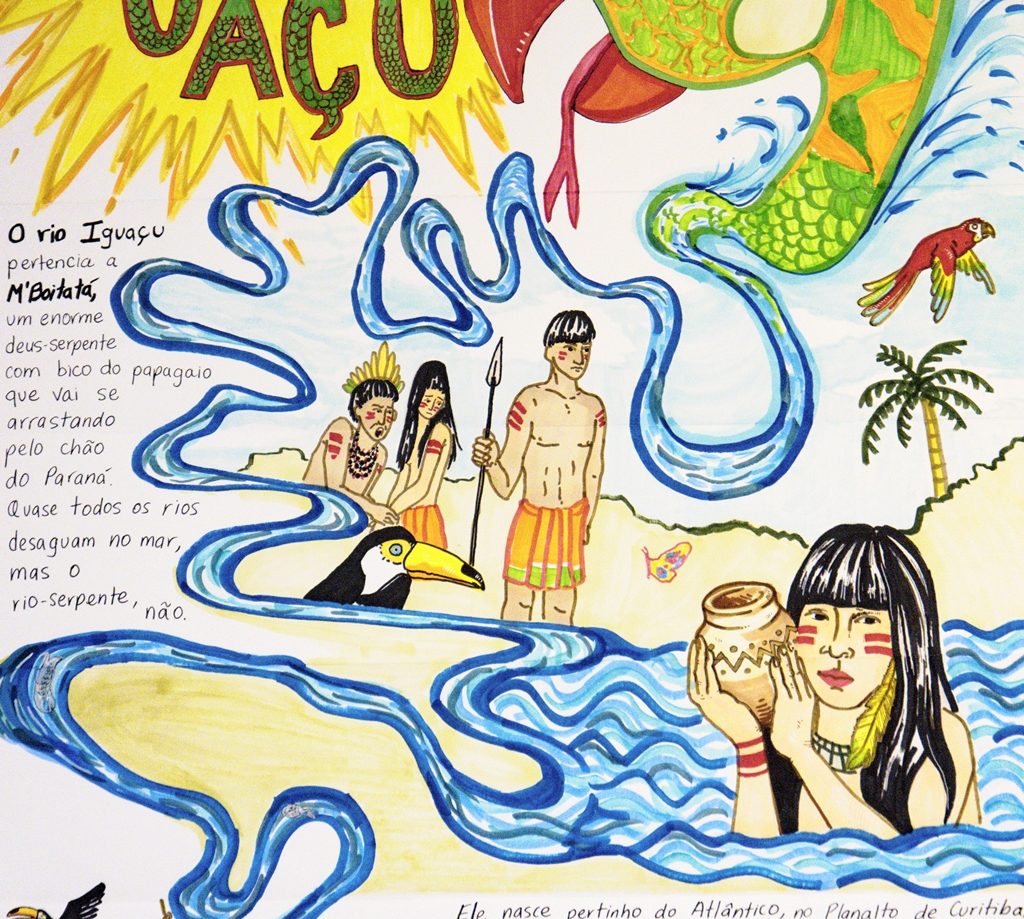 UAÇU
O rio Iguaçu
pertencia a
M'Boitatá,
um enorme
deus-serpente
com bico do papagaio
que vai se
arrastando
pelo chão
do Paraná.
Quase todos os rios
desaguam no mar,
mas o
rio-serpente, não.
Ele nasce pertinho do Atlântico, no Planalto de Curitiba